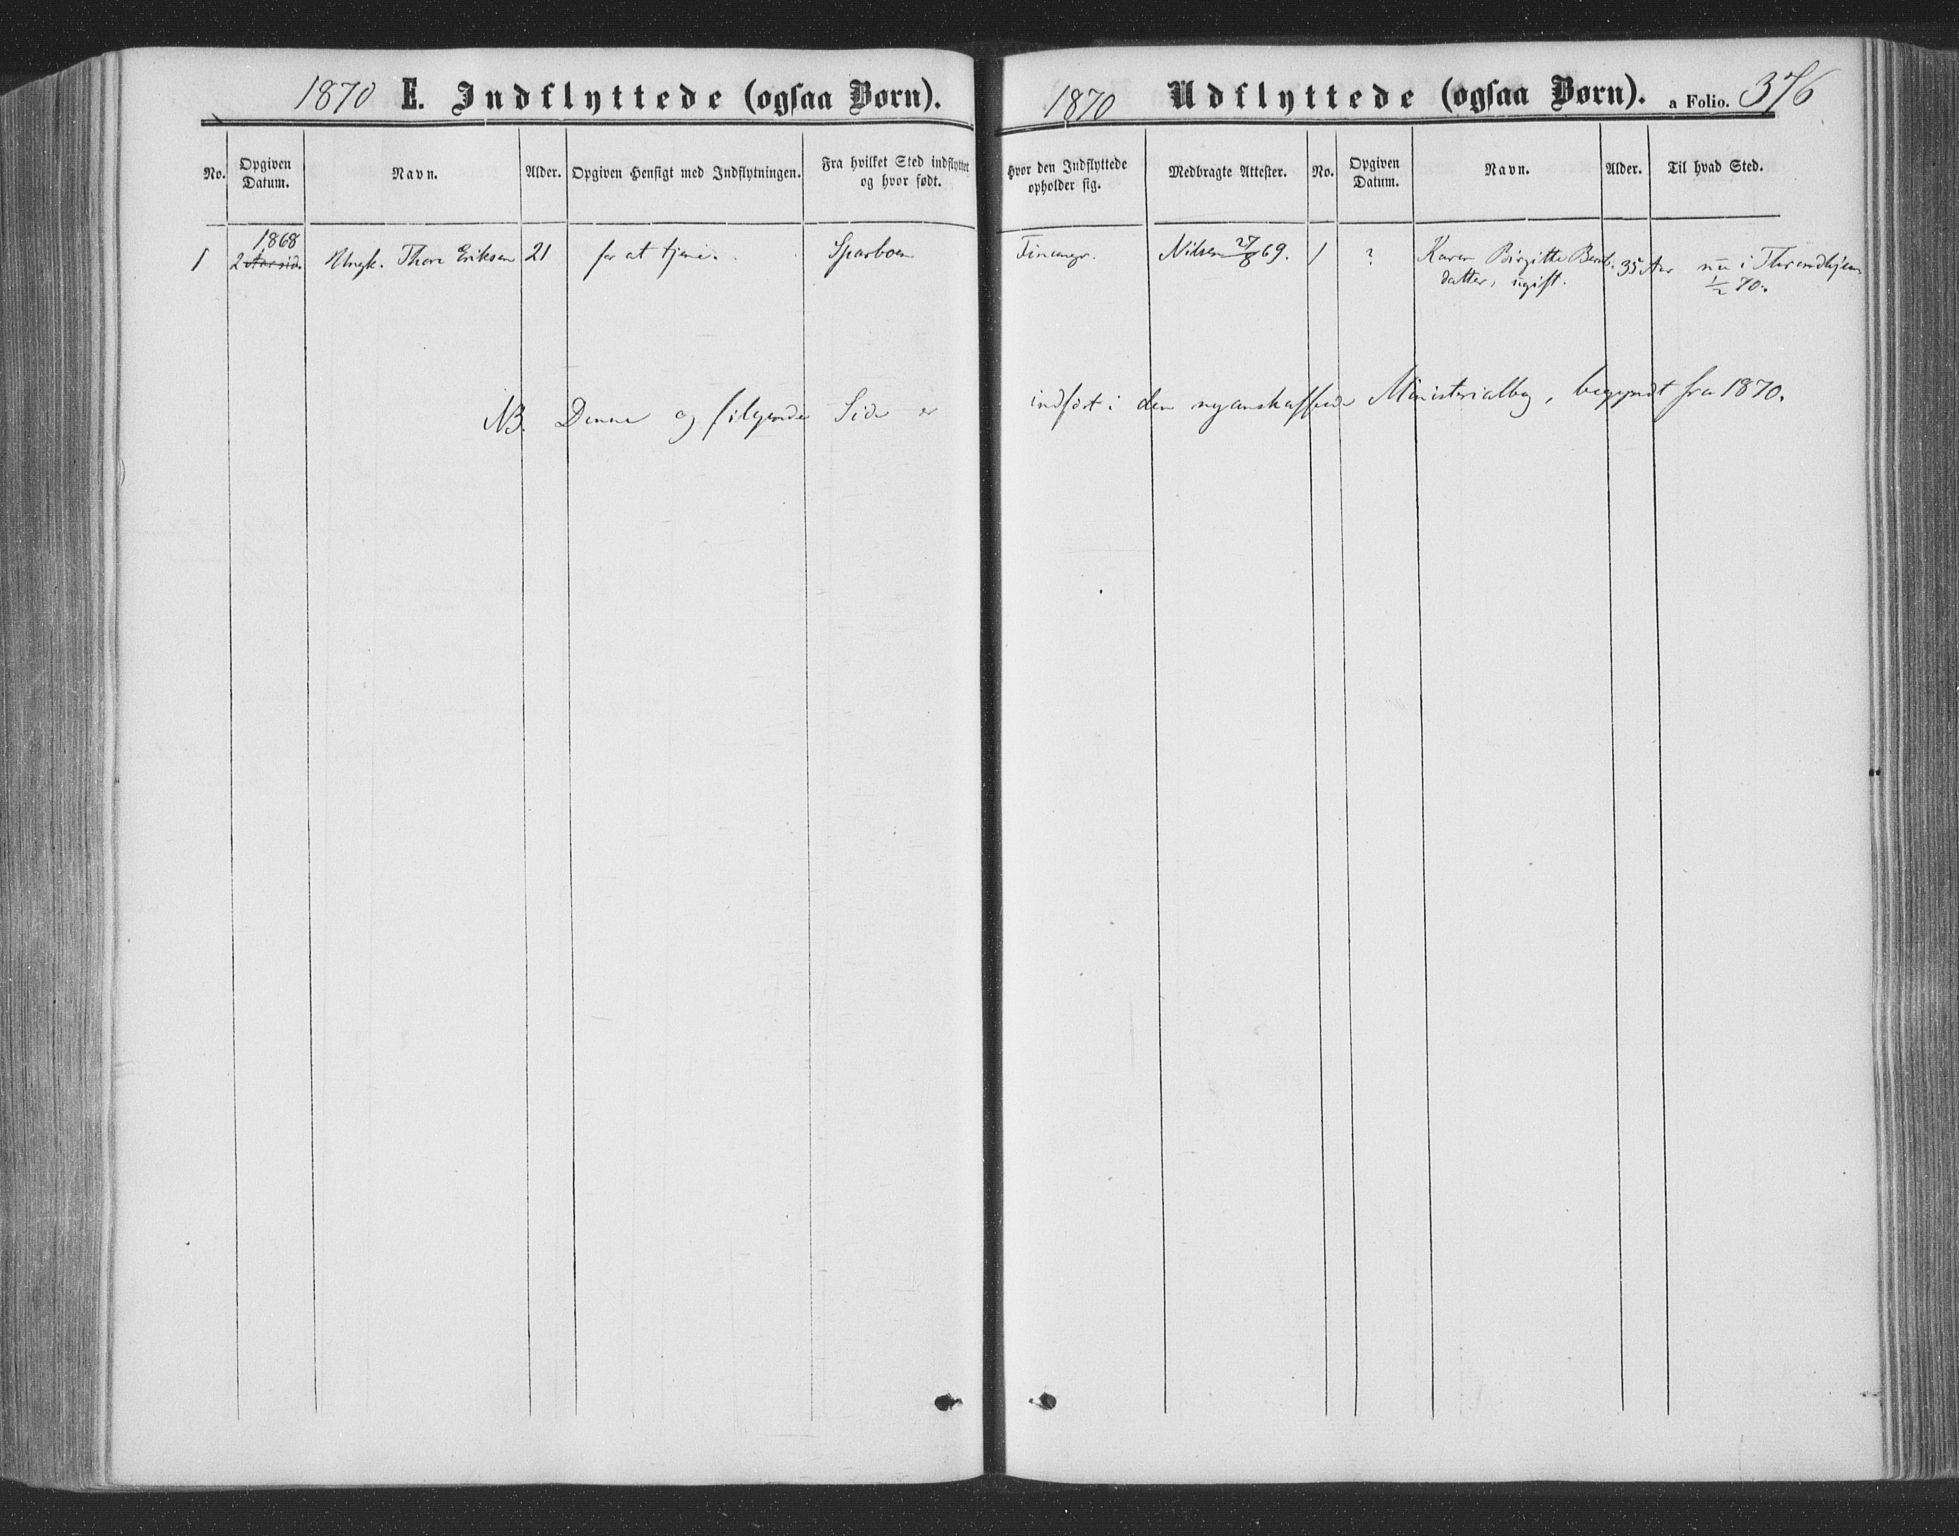 1870 E. Indflyttede (ogsaa Børn).
No. Opgiven Datum. Navn. Alder. Opgiven Hensigt med Indflytningen. Fra hvilket Sted indflyttet og hvor født.
1868
1 2 Ungk. Thore Eriksen 21 for at tjene. Sparboen
NB. Denne og følgende Side er
1870 Udflyttede (ogsaa Børn). a Folio. 376
Hvor den Indflyttede opholder sig. Medbragte Attester. No. Opgiven Datum. Navn. Alder. Til hvad Sted.
Nilsen 27/8 69. 1 ? Karen Birgitte Bernt- 35 Aar nu i Throndhjem
datter, ugift. 1/2 70.
indført i den nyanskaffede Ministerialbog, begyndt fra 1870.